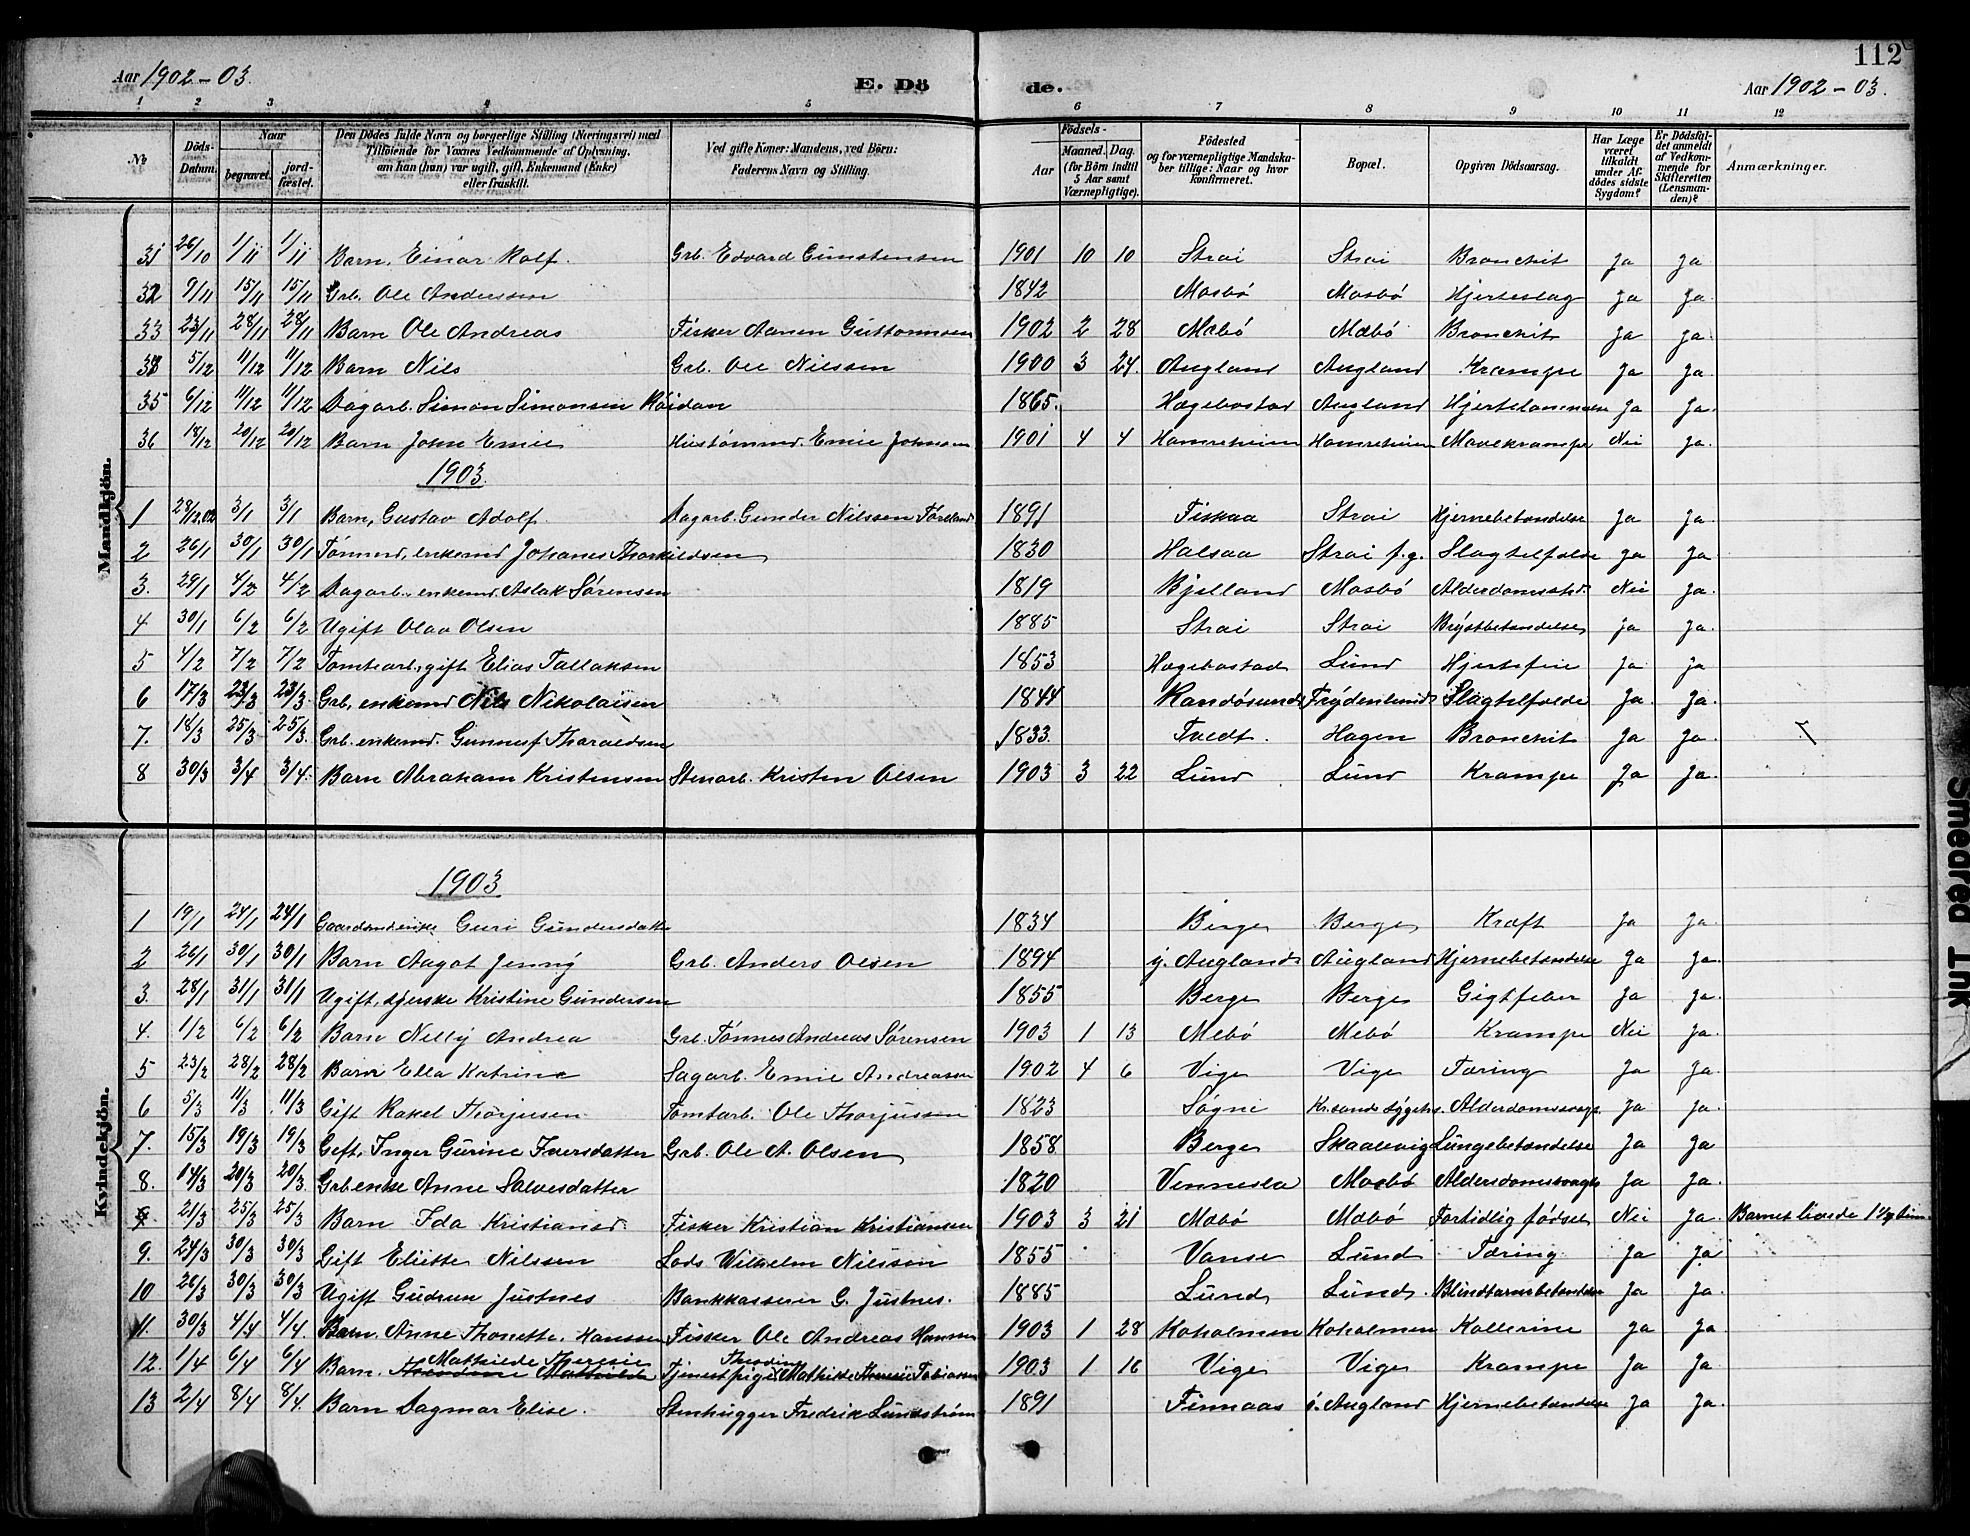 112
Aar 1902-03. E. Dö de. Aar 1902-03.
1 2 3 4 5 6 7 8 9 10 11 12
№ Döds-Datum. Naar begravet. jord-fæstet. Den Dödes fulde Navn og borgerlige Stilling (Næringsvei) med Tilföiende for Voxnes Vedkommende af Oplysning, om han (hun) var ugift, gift, Enkemand (Enke) eller fraskilt. Ved gifte Koner: Mandens, ved Börn: Faderens Navn og Stilling. Födsels- Aar Maaned. Dag. (for Börn indtil 5 Aar samt Værnepligtige). Födested og for værnepligtige Mandska-ber tillige: Naar og hvor konfirmeret. Bopæl. Opgiven Dödsaarsag. Har Læge været tilkaldt under Af-dödes sidste Sygdom? Er Dödsfal-det anmeldt af Vedkom-mende for Skifteretten (Lensman-den)? Anmærkninger.
Mandkjön.
31 26/10 1/11 1/11 Barn, Einar Rolf. Grb. Edvard Gunstensen 1901 10 10 Strai Strai Bronchit Ja Ja
32 9/11 15/11 15/11 Grb. Ole Anderssen 1842 Mosbö Mosbö Hjerteslag Ja Ja.
33 23/11 28/11 28/11 Barn Ole Andreas Fisker Aanen Guttormsen 1902 2 28 Mæbö Mæbö Bronchit Ja Ja.
34 5/12 11/12 11/12 Barn Nils Grb. Ole Nilssen 1900 3 24. Augland Augland Krampe Ja Ja.
35 6/12 11/12 11/12 Dagarb. Simon Simonsen 1865. Hægebostad Augland Hjertelammelse Ja Ja.
36 18/12 20/12 20/12 Barn John Emil Hustømmd. Emil Johnsen 1901 4 4 Hamreheien Hamreheien Mavekrampe Nei Ja.
1903.
1 28/12.02 3/1 3/1 Barn, Gustav Adolf. Dagarb. Gunder Nilssen 1891 Fiskaa Strai Hjernebetændelse Ja Ja.
2 26/1 30/1 30/1 Tømmd, enkemd Johanes Thorkildsen 1830 Halsaa Strai f.g. Slagtilfælde Ja Ja
3. 29/1 4/2 4/2 Dagarb., enkemd. Aslak Sørensen 1819 Bjelland Mosbö Nei Ja.
4 30/1 6/2 6/2 Ugift Olav Olsen 1885 Strai Strai Brystbetændelse Ja Ja.
5 4/2 7/2 7/2 Tomtearb., gift Elias Tallaksen 1853 Hægebostad Lund Hjertefeil Ja Ja
6 17/3 23/3 23/3. Grb, enkemd Nils Nikolaisen 1844 Randösund Frydenlund Slagtilfælde Ja. Ja.
7. 18/3 25/3 25/3. Grb. enkemd. Gunnuf Tharaldsen 1833. Tvedt. Hagen Bronchit Ja Ja.
8 30/3 3/4 3/4. Barn Abraham Kristensen Stenarb. Kristen Olsen 1903 3 22 Lund Lund Krampe Ja Ja.
Kvindekjön.
1903
1 19/1 24/1 24/1 Gaardmdenke Guri Gundersdatter 1834 Berge Berge Kræft Ja Ja.
2 26/1 30/1 30/1 Barn Aagot Jenny Grb. Anders Olsen 1894 Augland Augland Hjernebetændelse Ja Ja.
3. 28/1 31/1 31/1 Ugift, syerske Kristine Gundersen 1855 Berge Berge Gigtfeber Ja Ja.
4. 1/2 6/2 6/2 Barn Nelly Andrea Grb. Tønnes Andreas Sørensen 1903 1 13 Mebö Mebö Krampe Nei Ja.
5 23/2 28/2 28/2 Barn Ella Katrine Sagarb. Emil Andreassen 1902 4 6 Vige Vige Tæring Ja Ja.
6 5/3 11/3 11/3 Gift Rakel Thorjusen Tomtarb. Ole Thorjussen 1823 Søgni Kr.sands sygeh. Alderdomssvagh. Ja Ja.
7. 15/3 19/3 19/3 Gift, Inger Gurine Iversdatter Grb. Ole A. Olsen 1858 Berge Skaalevig Lungebetændelse Ja Ja
8. 14/3 20/3 20/3. Grb enke Anne Salvesdatter 1820 Vennesla Mosbö Alderdomssvaghet Ja Ja.
21/3 25/3 25/3 Barn Ida Kristiansd. Fisker Kristian Kristiansen 1903 3 21 Mæbö Mæbö Fortidlig födsel Nei Ja. Barnet levede 1½ tim.
9. 24/3 30/3 30/3 Gift Elisette Nilssen Lods Vilhelm Nilssen 1855 Vanse Lund Tæring. Ja Ja
10 26/3 30/3 30/3 Ugift Gudrun Justnes Bankkasserer G. Justnes. 1885 Lund Lund. Blindtarmsbetændelse Ja Ja.
11. 30/3 4/4 4/4. Barn, Anne Thonette Hanssen Fisker Ole Andreas Hansen 1903 1 28 Koholmen Koholmen Kollerine Ja Ja
12. 1/4 6/4 6/4 Barn. Mathilde Theresie Theodine Mathilde Tjenestpige Theodine Mathilde Theresie Tobiassen 1903 1 16 Vige Vige Krampe Ja Ja
13 2/4 8/4 8/4. Barn Dagmar Elise. Stenhugger Fredrik Lundström 1891 Finnaas ö. Augland Hjernebetændelse Ja Ja.
Smeared Ink